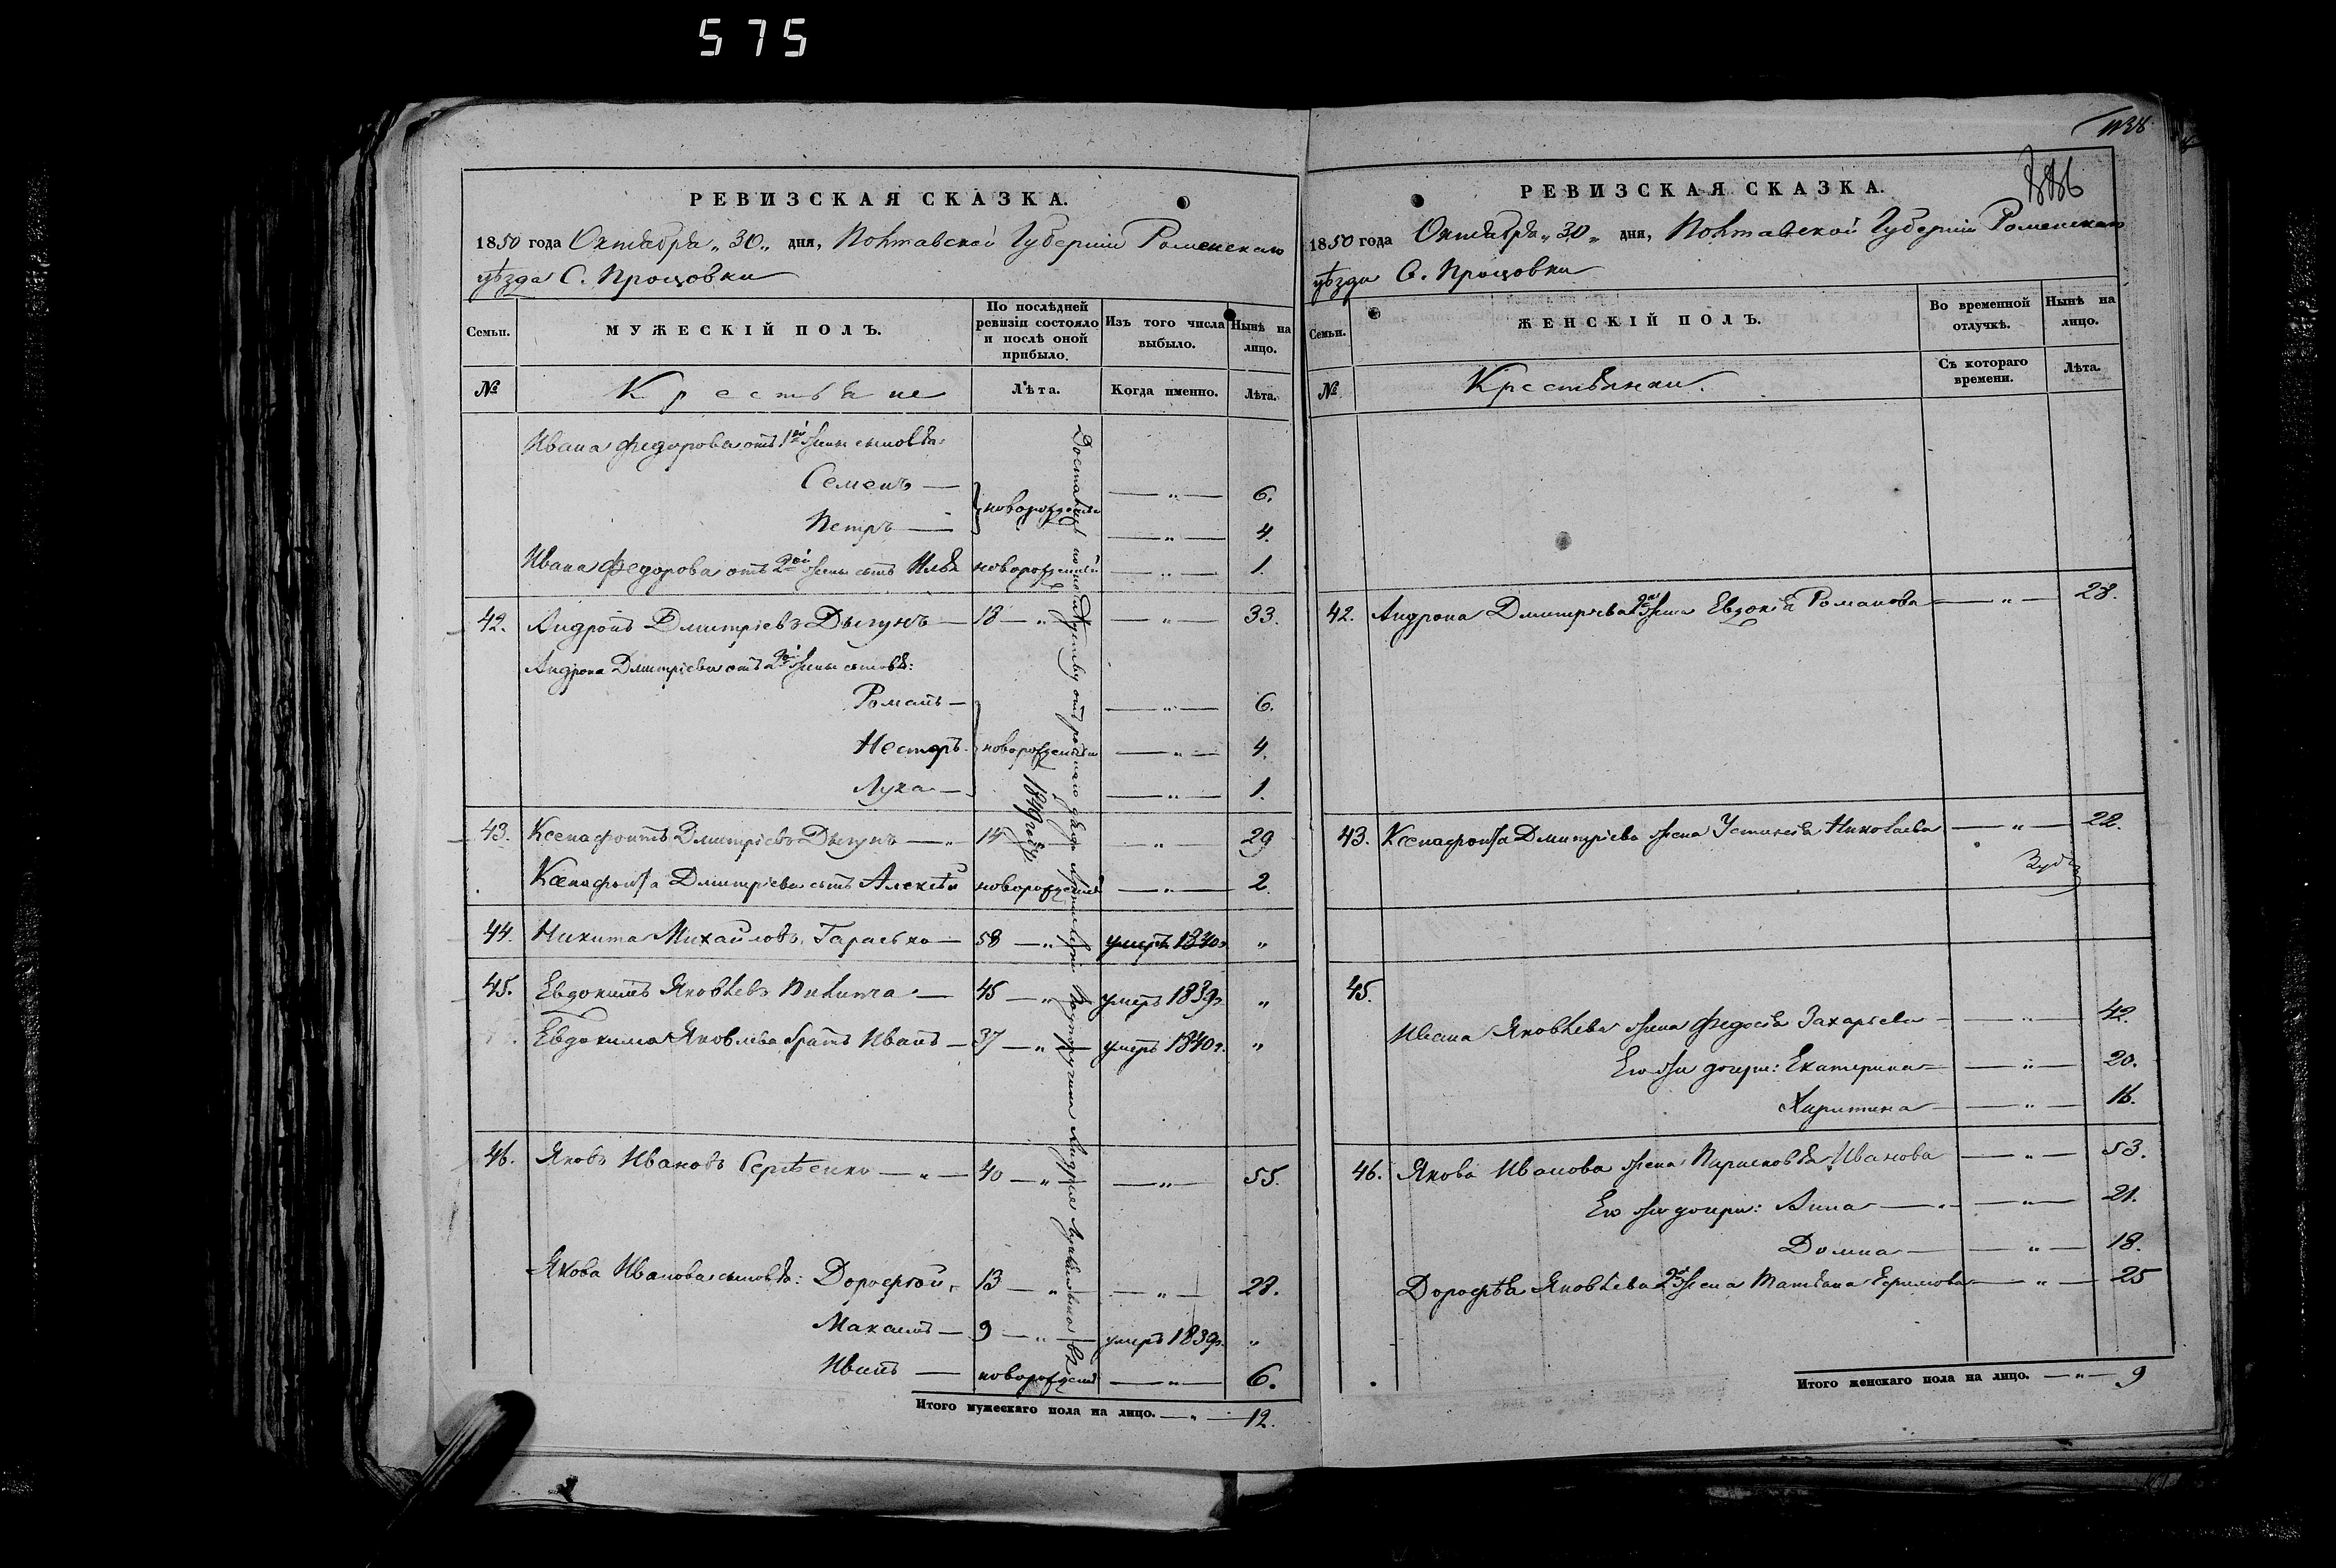 575
РЕВИЗСКАЯ СКАЗКА.
1850 года Октября „ 30 „ дня, Полтавской Губерніи Роменскаго
уѣзда С. Процовки
Семьи.
МУЖЕСКІЙ ПОЛЪ.
По послѣдней ревизіи состояло и послѣ оной прибыло.
Изъ того числа выбыло.
Нынѣ на лицо.
№
Крестьяне
Лѣта.
Когда именно.
Лѣта.
Ивана Федорова отъ 1й жены сыновья:
Семенъ — новорожденные — „ — 6.
Петръ — — „ — 4.
Ивана Федорова отъ 2ой жены сынъ Илья новорожденный — „ — 1.
42. Андронъ Дмитріевъ Дыгунъ — 18 — „ — — „ — 33.
Андрона Дмитріева отъ 2ой жены сыновья:
Романъ — — „ — 6.
Несторъ новорожденные — „ — 4.
Лука — — „ — 1.
43. Ксенофонтъ Дмитріевъ Дыгунъ — „ 14 — „ — 29
Ксенофонта Дмитріева сынъ Алексѣй новорожденный — „ — 2.
44. Никита Михайловъ Гарасько — 58 — „ — умеръ 1840 „
45. Евдокимъ Яковлевъ — 45 — „ — умеръ 1839г. „
Евдокима Яковлева братъ Иванъ — 37 — „ — умеръ 1840г. „
46. Яковъ Ивановъ Сергѣенко — „ — 40 — „ — — „ — 55.
Якова Иванова сыновья: Дорофѣй, 13 — „ — — „ — 28.
Максимъ — 9 — „ — умеръ 1839г. „
Иванъ — новорожденный — „ — 6.
Итого мужескаго пола на лицо. — „ — 12.
1849 году
РЕВИЗСКАЯ СКАЗКА.
1850 года Октября „ 30 „ дня, Полтавской Губерніи Роменскаго
уѣзда С. Процовки
Семьи.
ЖЕНСКІЙ ПОЛЪ.
Во временной отлучкѣ.
Нынѣ на лицо.
№
Крестьянки.
Съ котораго времени.
Лѣта.
42. Андрона Дмитріева 2я жена Евдокія Романова — „ — 28.
43. Ксенофонта Дмитріева жена Устинія Николаева — „ — 22.
45.
Ивана Яковлева жена Федосія Захаріева — „ — 42.
Его жъ дочери: Екатерина — „ — 20.
Харитина — „ — 16.
46. Якова Иванова жена Парасковья Иванова — „ — 53.
Его жъ дочери: Анна — „ — „ — 21.
Домна — — „ — 18.
Дорофѣя Яковлева 2я жена Татьяна Ефимова — „ — 25
Итого женскаго пола на лицо. — „ — 9